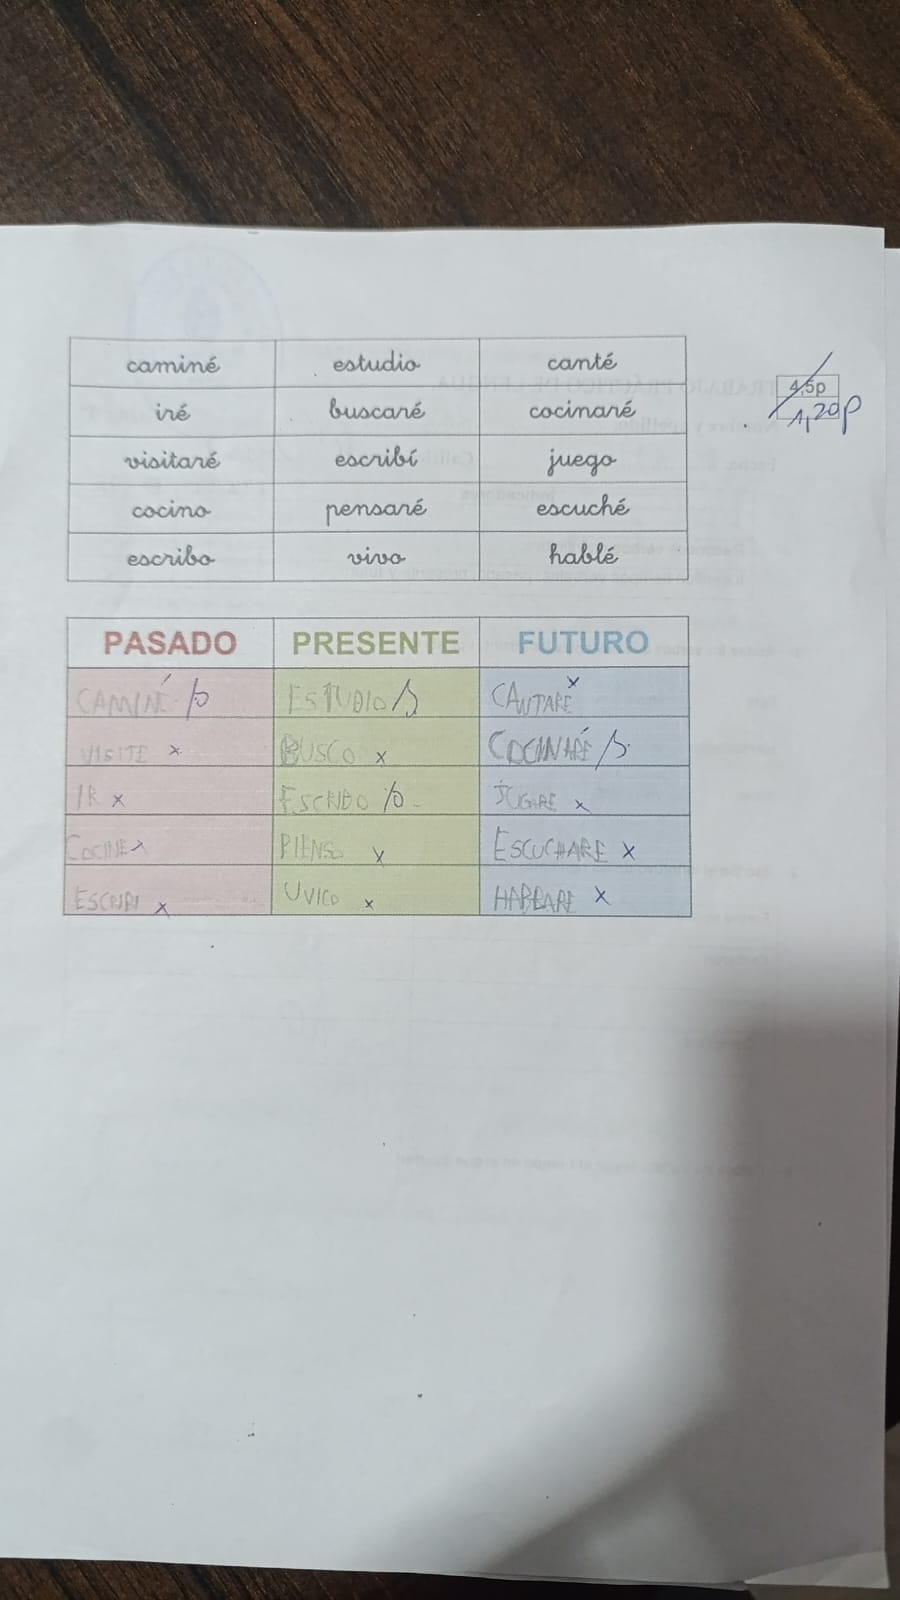 caminé estudio canté
iré buscaré cocinaré
4,5p
visitaré escribí juego
1,20p
cocino pensaré escuché
escribo vivo hablé
PASADO PRESENTE FUTURO
CAMINÉ ESTUDIO CANTARE x
VISITE x BUSCO x COCINARÉ
IR x ESCRIBO JUGARE x
COCINE x PIENSO x ESCUCHARE x
ESCRIBI x UVICO x HABLARE x